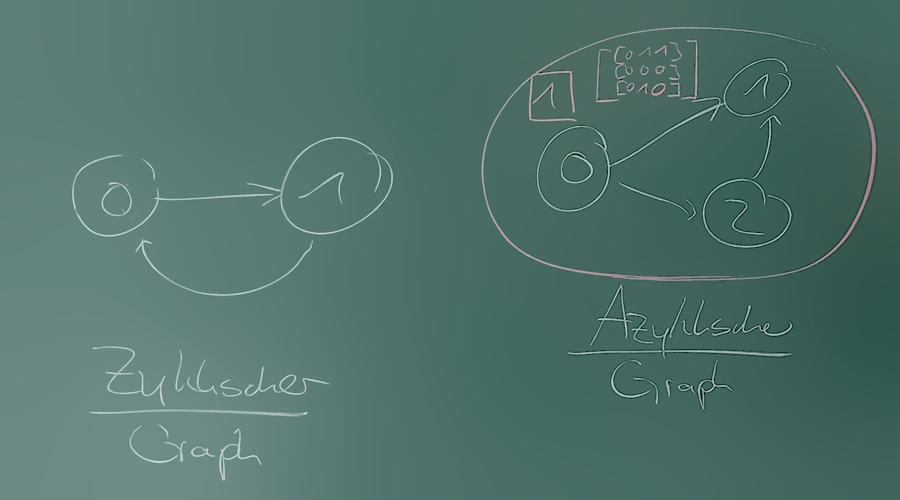 0
1
Zyklischer
Graph
1
[[0 1 1]
[0 0 0]
[0 1 0]]
0
1
2
Azyklische
Graph